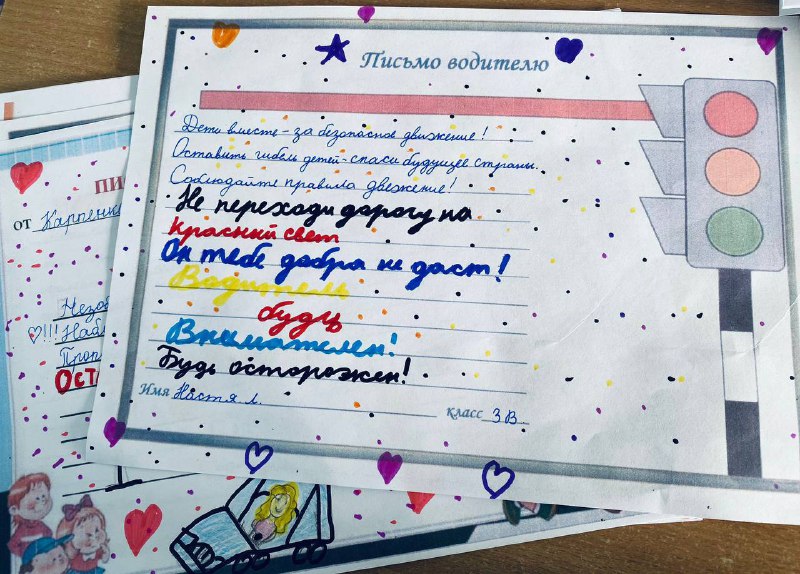 Письмо водителю
Дети вместе - за безопасное движение!
Оставить гибель детей - спаси будущее страны.
Соблюдайте правила движение!
Не переходи дорогу на
Красный свет
Он тебе добра не даст!
Водитель
будь
Внимателен!
Будь осторожен!
Имя Настя Л. класс 3 В
ПИ
от Карпенк
Незаб
!!! Наб
Проп
ОСТ